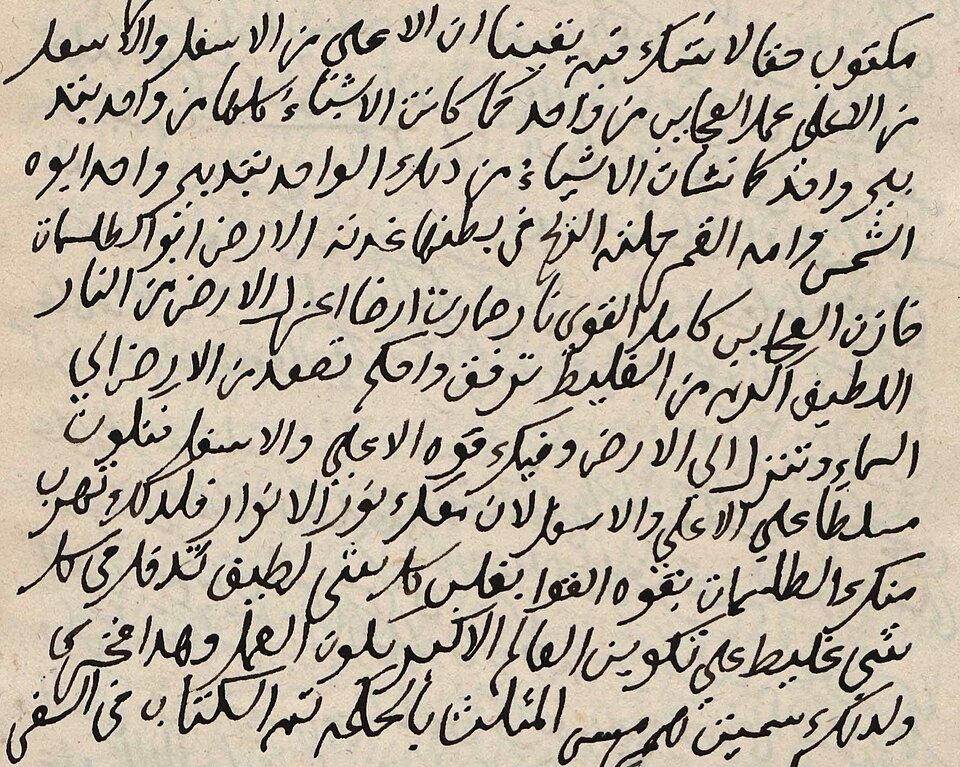 مكتوب حقا لا شك فيه يقينا ان الاعلي من الاسفل والاسفل
من الاعلي عمل العجايب من واحد كما كانت الاشياء كلها من واحد بتد
بير واحد كما نشات الاشياء من ذلك الواحد بتدبير واحد ابوه
الشمس وامه القمر حملته الريح في بطنها غدته الارض ابو الطلسمات
خازن العجايب كامل القوي نار صارت ارضا اعزل الارض من النار
اللطيف اكرم من الغليظ برفق وحكم تصعد من الارض الي
السماء وتنزل الي الارض وفيك قوه الاعلي والاسفل فتكون
مسلطا علي الاعلي والاسفل لان معك نور الانوار فلذلك تهرب
منك الطلسمات بقوه القوا يغلب كل شي لطيف تدخل في كل
شي غليظ علي تكوين العالم الاكبر يكون العمل وهدا فخري
ولذلك سميت هرمس المثلث بالحكمه تم الكتاب في